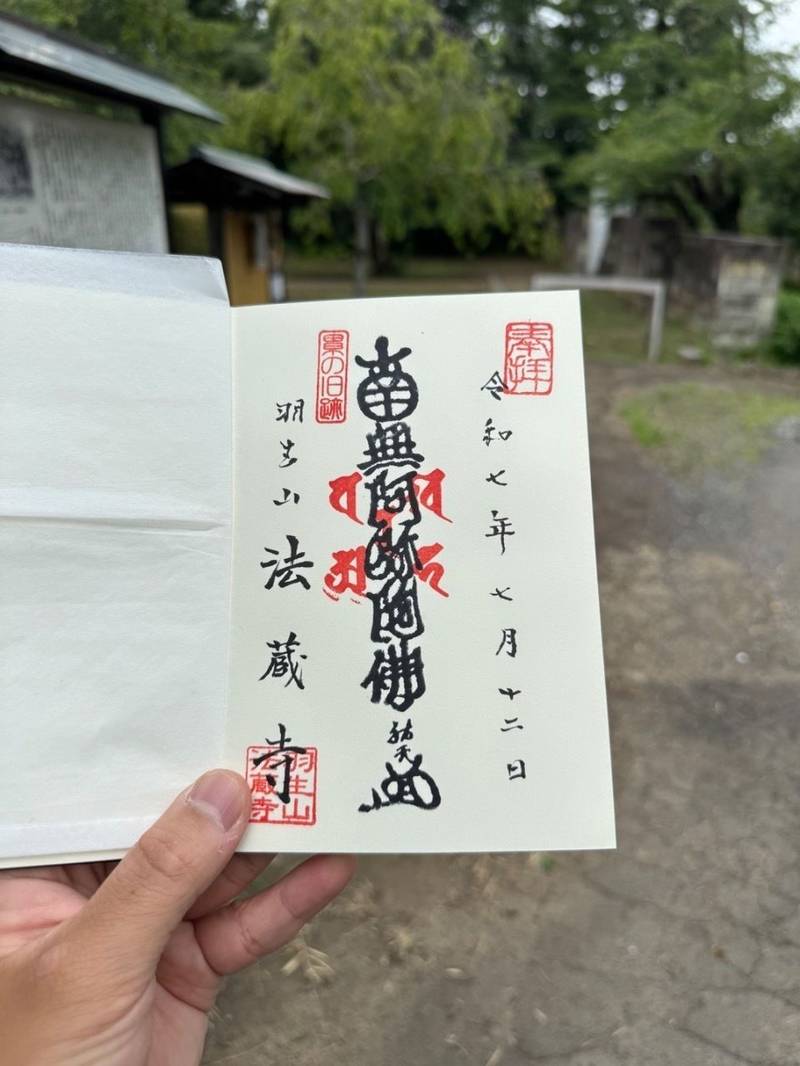 奉拝
令和七年七月十二日
南無阿弥陀佛
祐天
累の旧跡
羽生山 法蔵寺
羽生山
法蔵寺